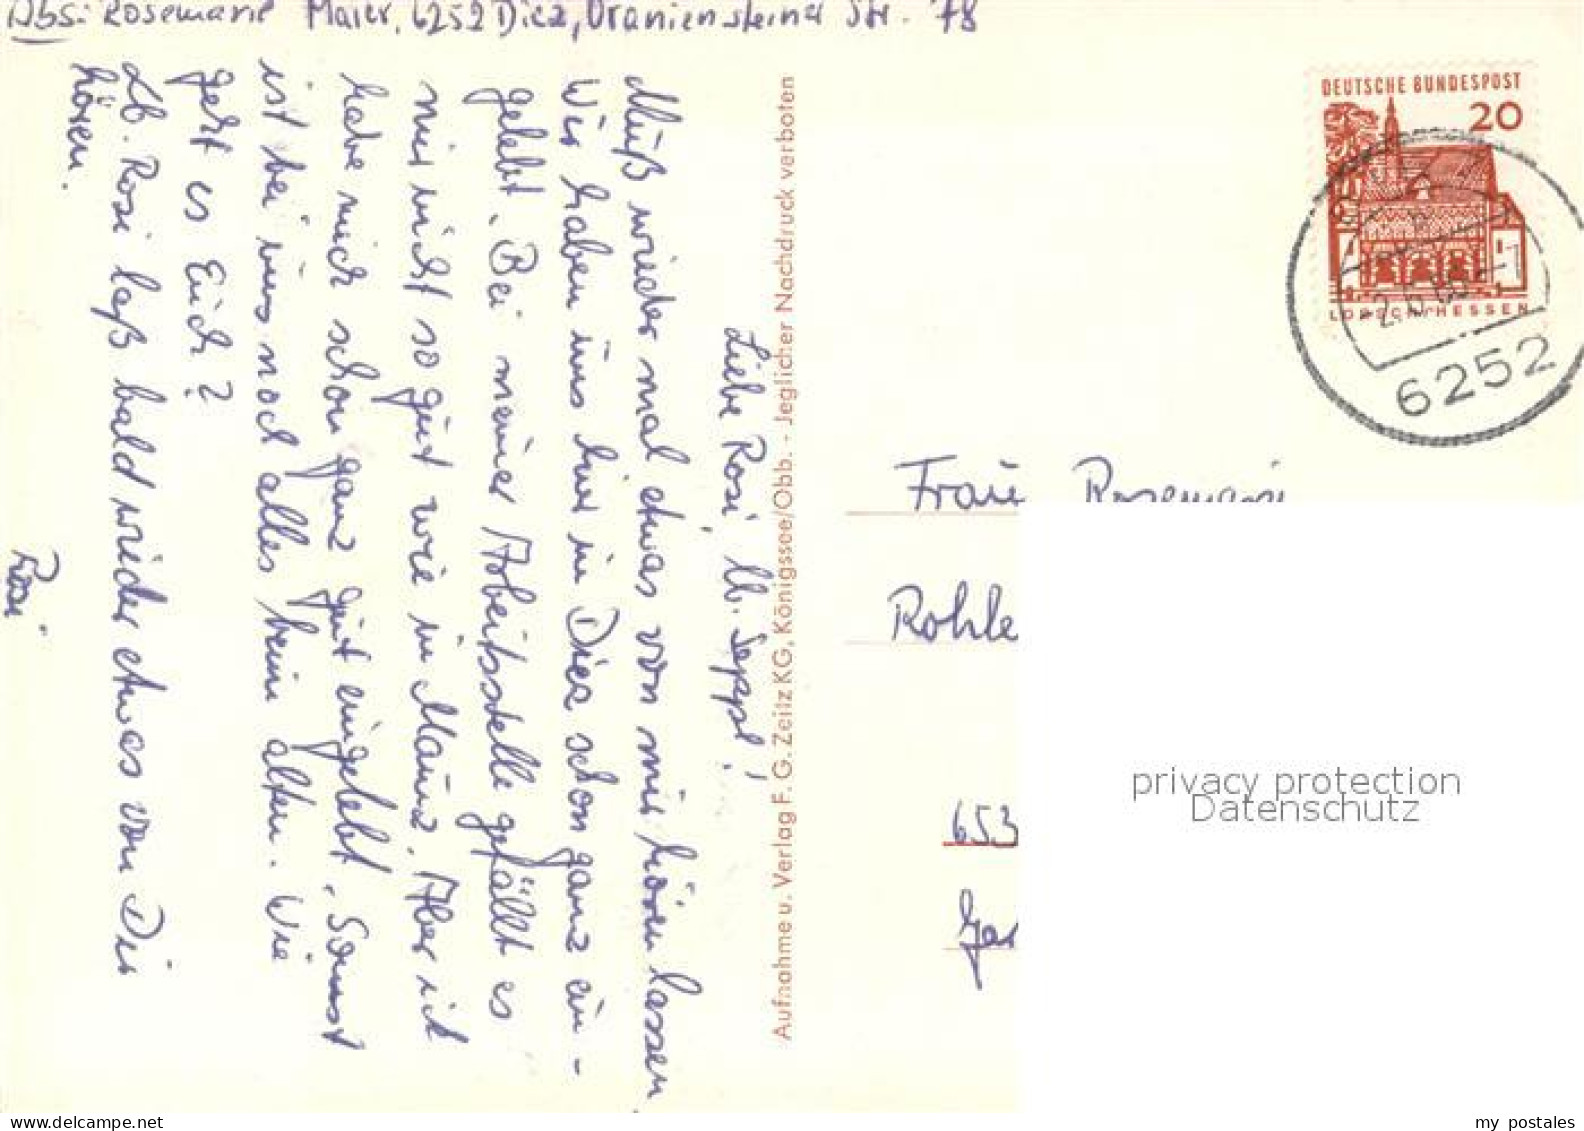 Abs: Rosemarie Maier, 6252 Diez, Oraniensteiner Str. 78
Liebe Rosi, lb. Seppl!
Muß wieder mal etwas von mir hören lassen
Wir haben uns hier in Diez schon ganz ein-
gelebt. Bei meiner Arbeitsstelle gefällt es
mir nicht so gut wie in Mainz. Aber ich
habe mich schon ganz gut eingelebt. Sonst
ist bei uns noch alles beim alten. Wie
geht es Euch?
Lb. Rosi laß bald wieder etwas von Dir
hören.
Rosi
Aufnahme u. Verlag F. G. Zeitz KG, Königssee/Obb. - Jeglicher Nachdruck verboten
DEUTSCHE BUNDESPOST
20
LORSCH/HESSEN
6252
Frau Rosemarie
Rohle
653
privacy protection
Datenschutz
www.ansichtskartenversand.com
my postales